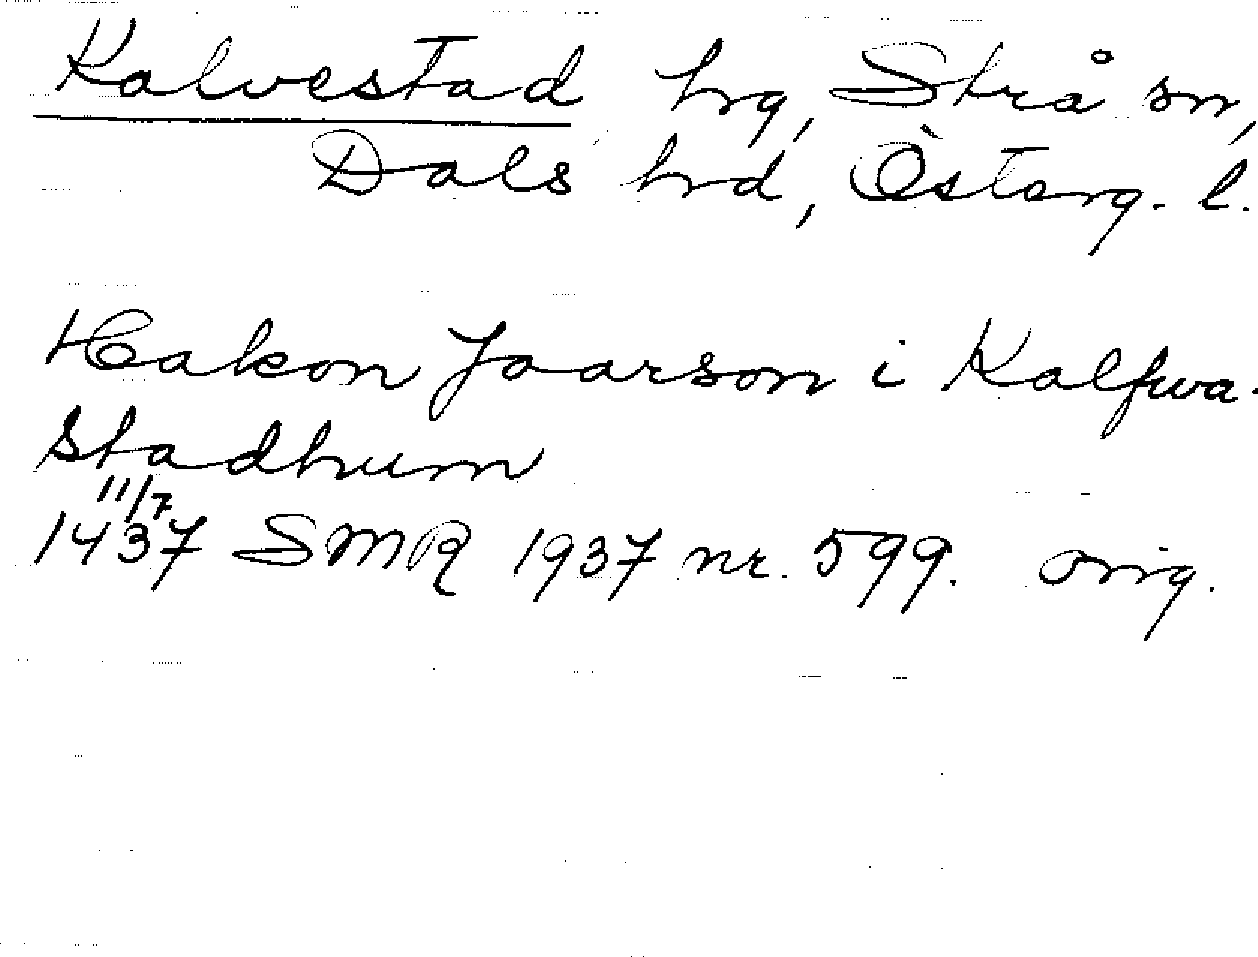 Kalvestad hrg, Strå sn,
Dals hrd, Österg. l.
Hakon Joarson i Kalfwa-
stadhum
11/7
1437 SMR 1937 nr. 599. orig.